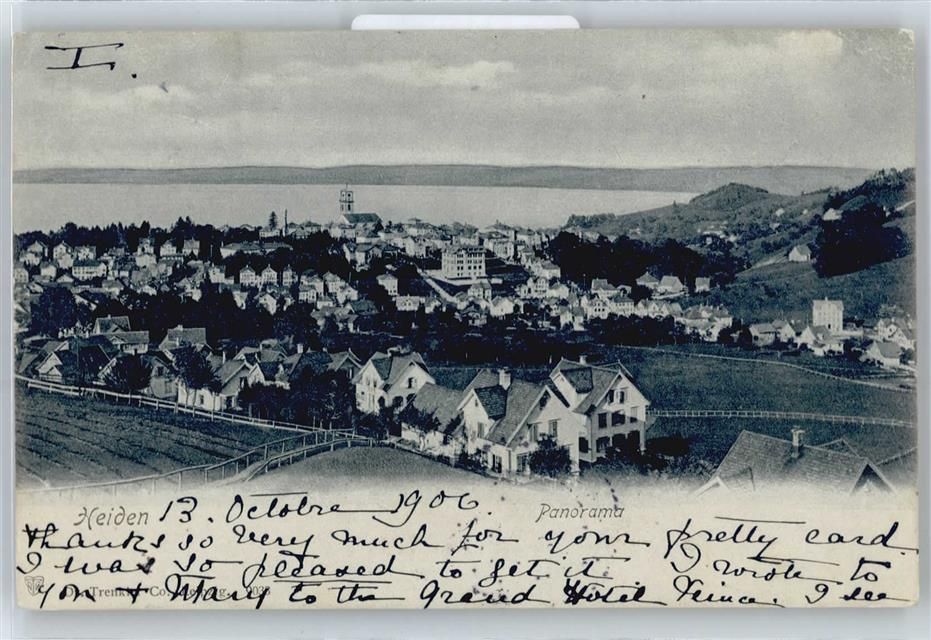 I.
Heiden 13. Octobre 1906. Panorama
Thanks so very much for your pretty card.
I was so pleased to get it. I wrote to
you & Mary to the Grand Hotel Venice. I see
Dr. Trenkler Co., Leipzig.